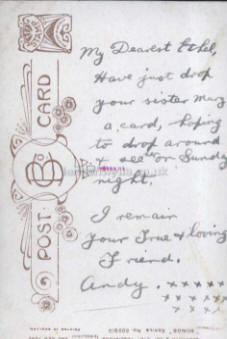 My Dearest Ethel,
Have just drop
your sister Mary
a card, hoping
to drop around
& see on Sunday
night.
I remain
your True & loving
Friend.
Andy. x x x x x
x x x x x
POST CARD
B
PRINTED IN